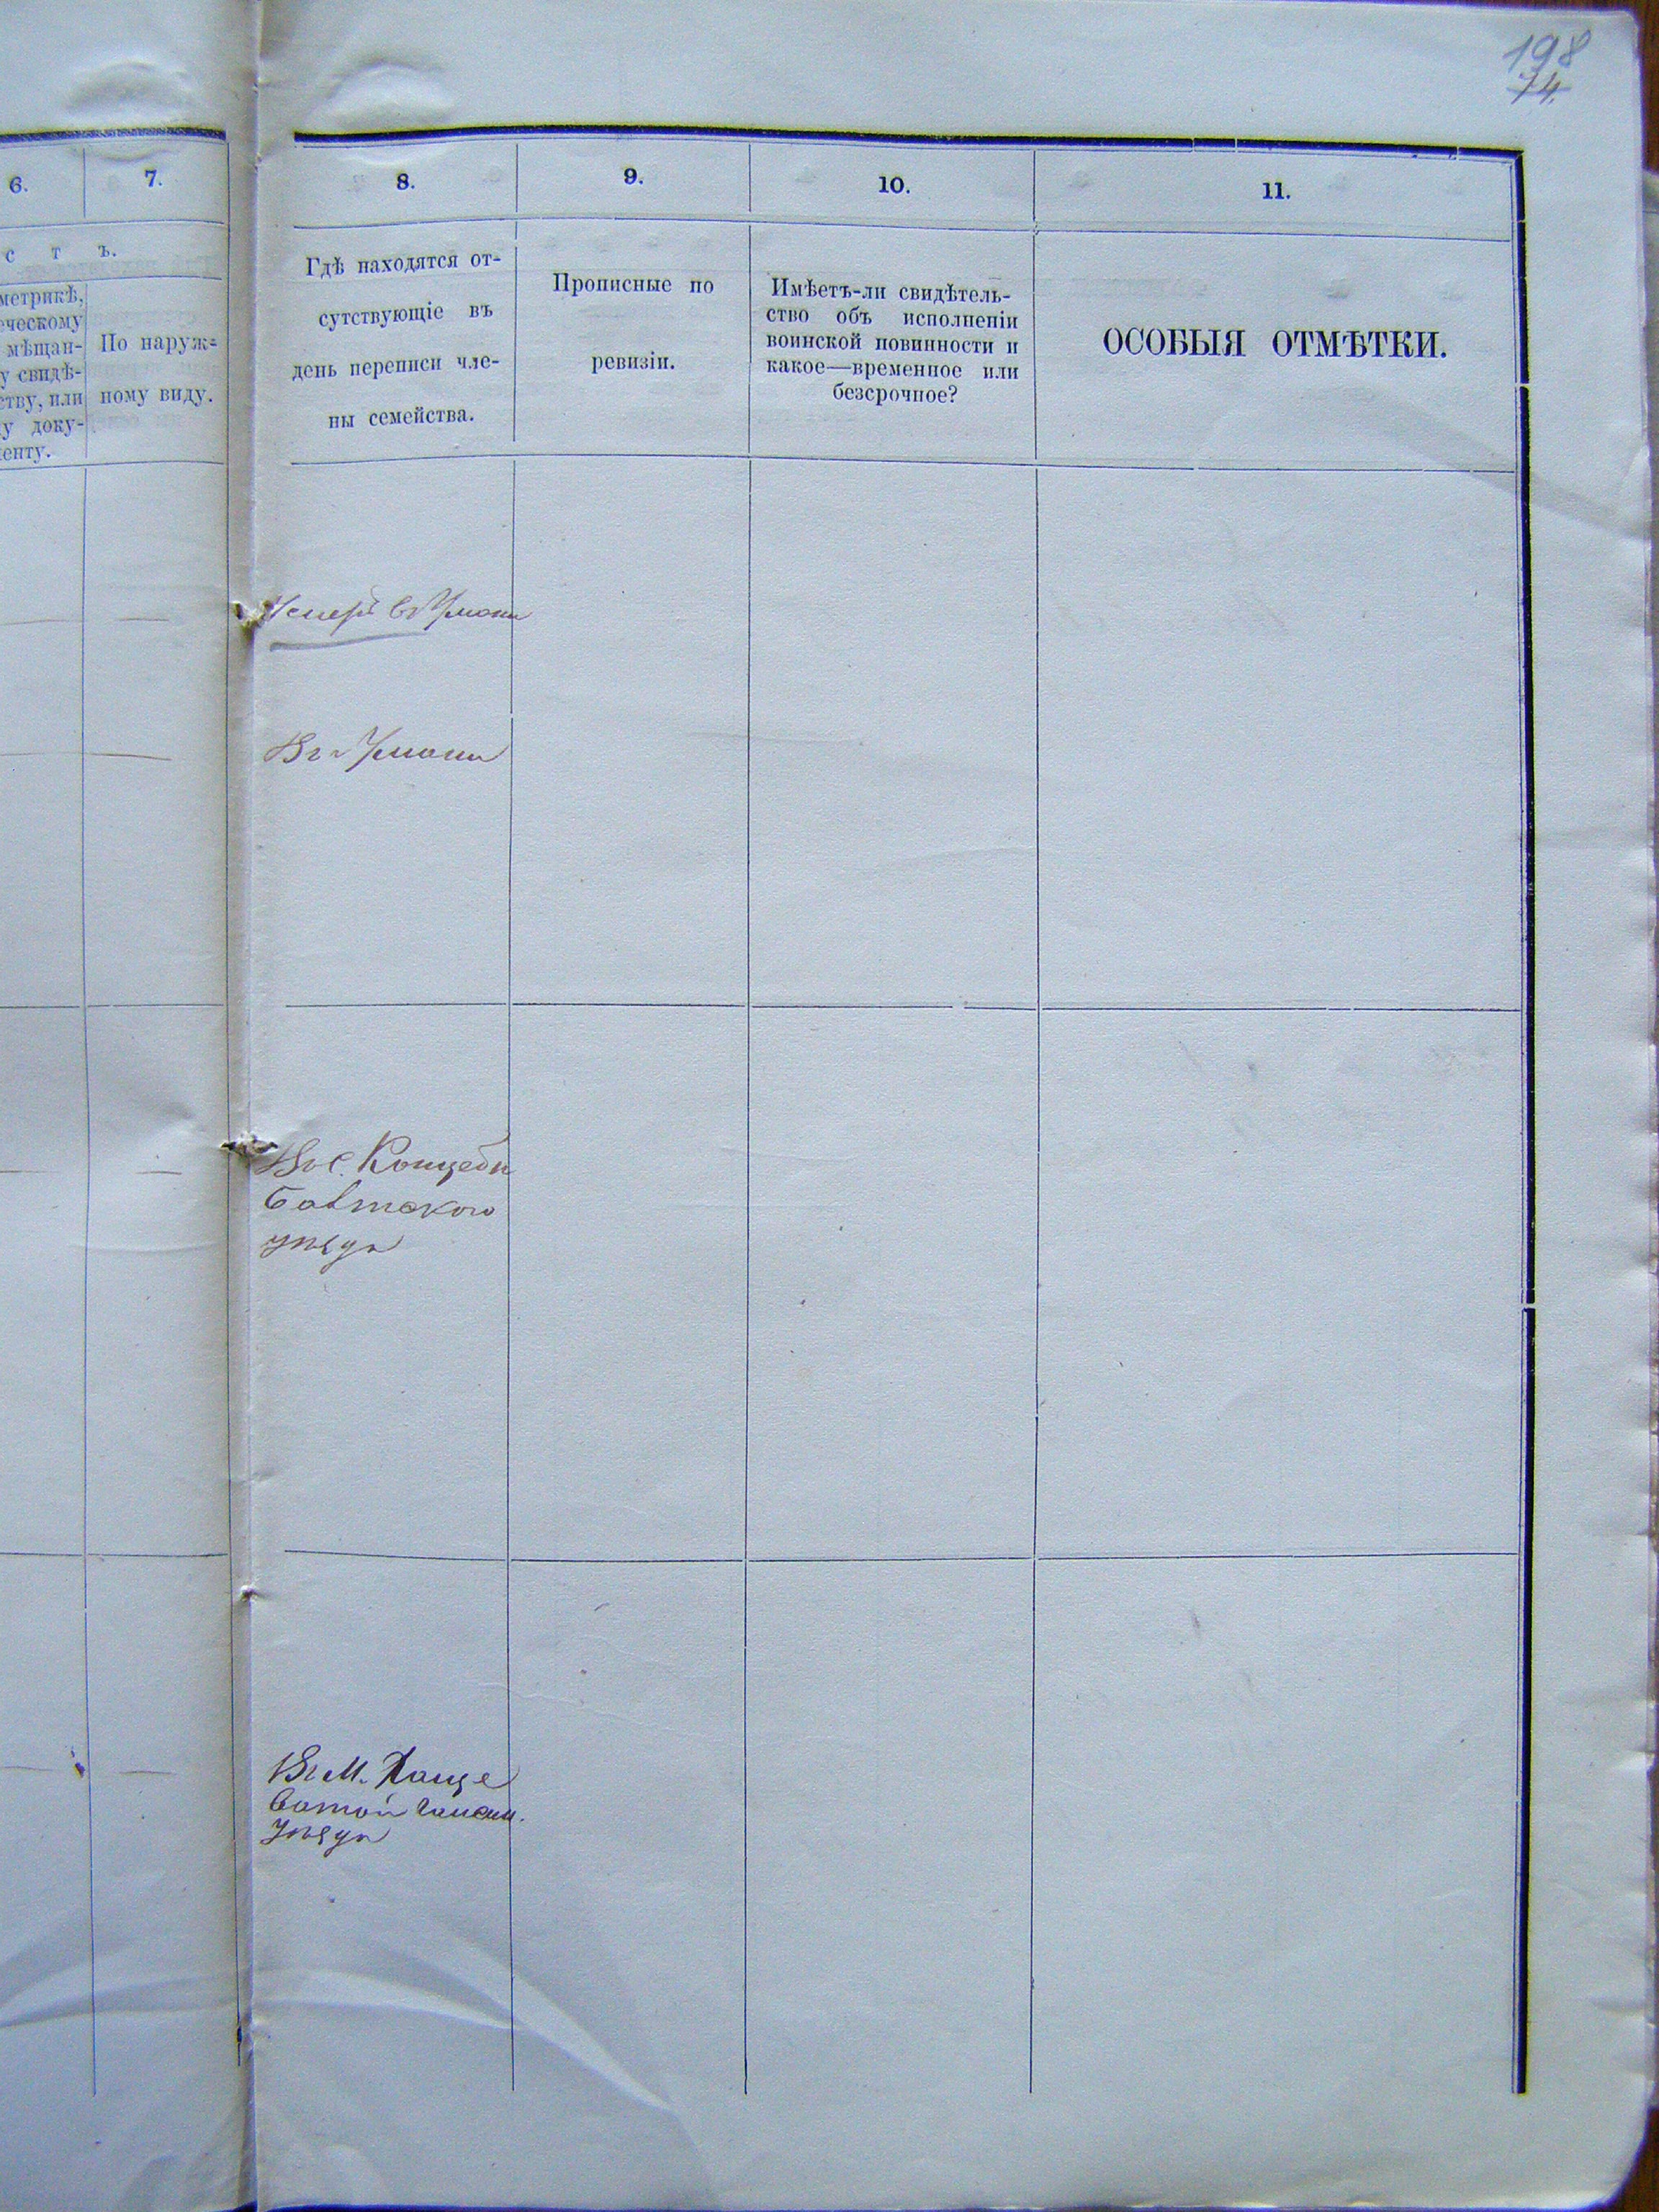 198
74.
6.
7.
8.
9.
10.
11.
с т ъ.
метрикѣ,
ческому
мѣщан-
у свидѣ-
ству, или
у доку-
енту.
По наруж-
ному виду.
Гдѣ находятся от-
сутствующіе въ
день переписи чле-
ны семейства.
Прописные по
ревизіи.
Имѣетъ-ли свидѣтель-
ство объ исполненіи
воинской повинности и
какое—временное или
безсрочное?
ОСОБЫЯ ОТМѢТКИ.
въ Умани
Въ Умани
Въ с. Концеби
Балтскаго
уѣзда
Въ м. Хаще
ватой Гайсин.
уѣзда